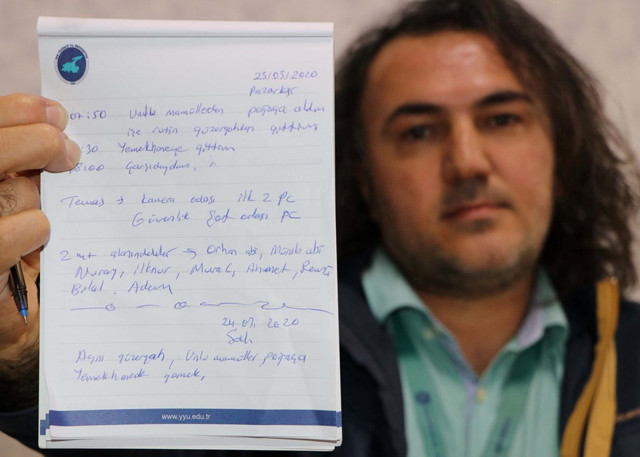 23/03/2020
Pazartesi
07:50 Unlu mamullerden poğaça aldım
işe rutin güzergahtan gittim
30 Yemekhaneye gittim
15:00 Çarşıdaydım.
Temas → kamera odası ilk 2 PC
Güvenlik Şef odası PC
2 met alanındakiler → Orhan abi, Münib abi
Muraz, ilknur, Murat, Ahmet, Remzi
Bilal, Adem
24.03.2020
Salı
Aynı güzergah, Unlu mamuller poğaça
Yemekhanede yemek,
www.yyu.edu.tr